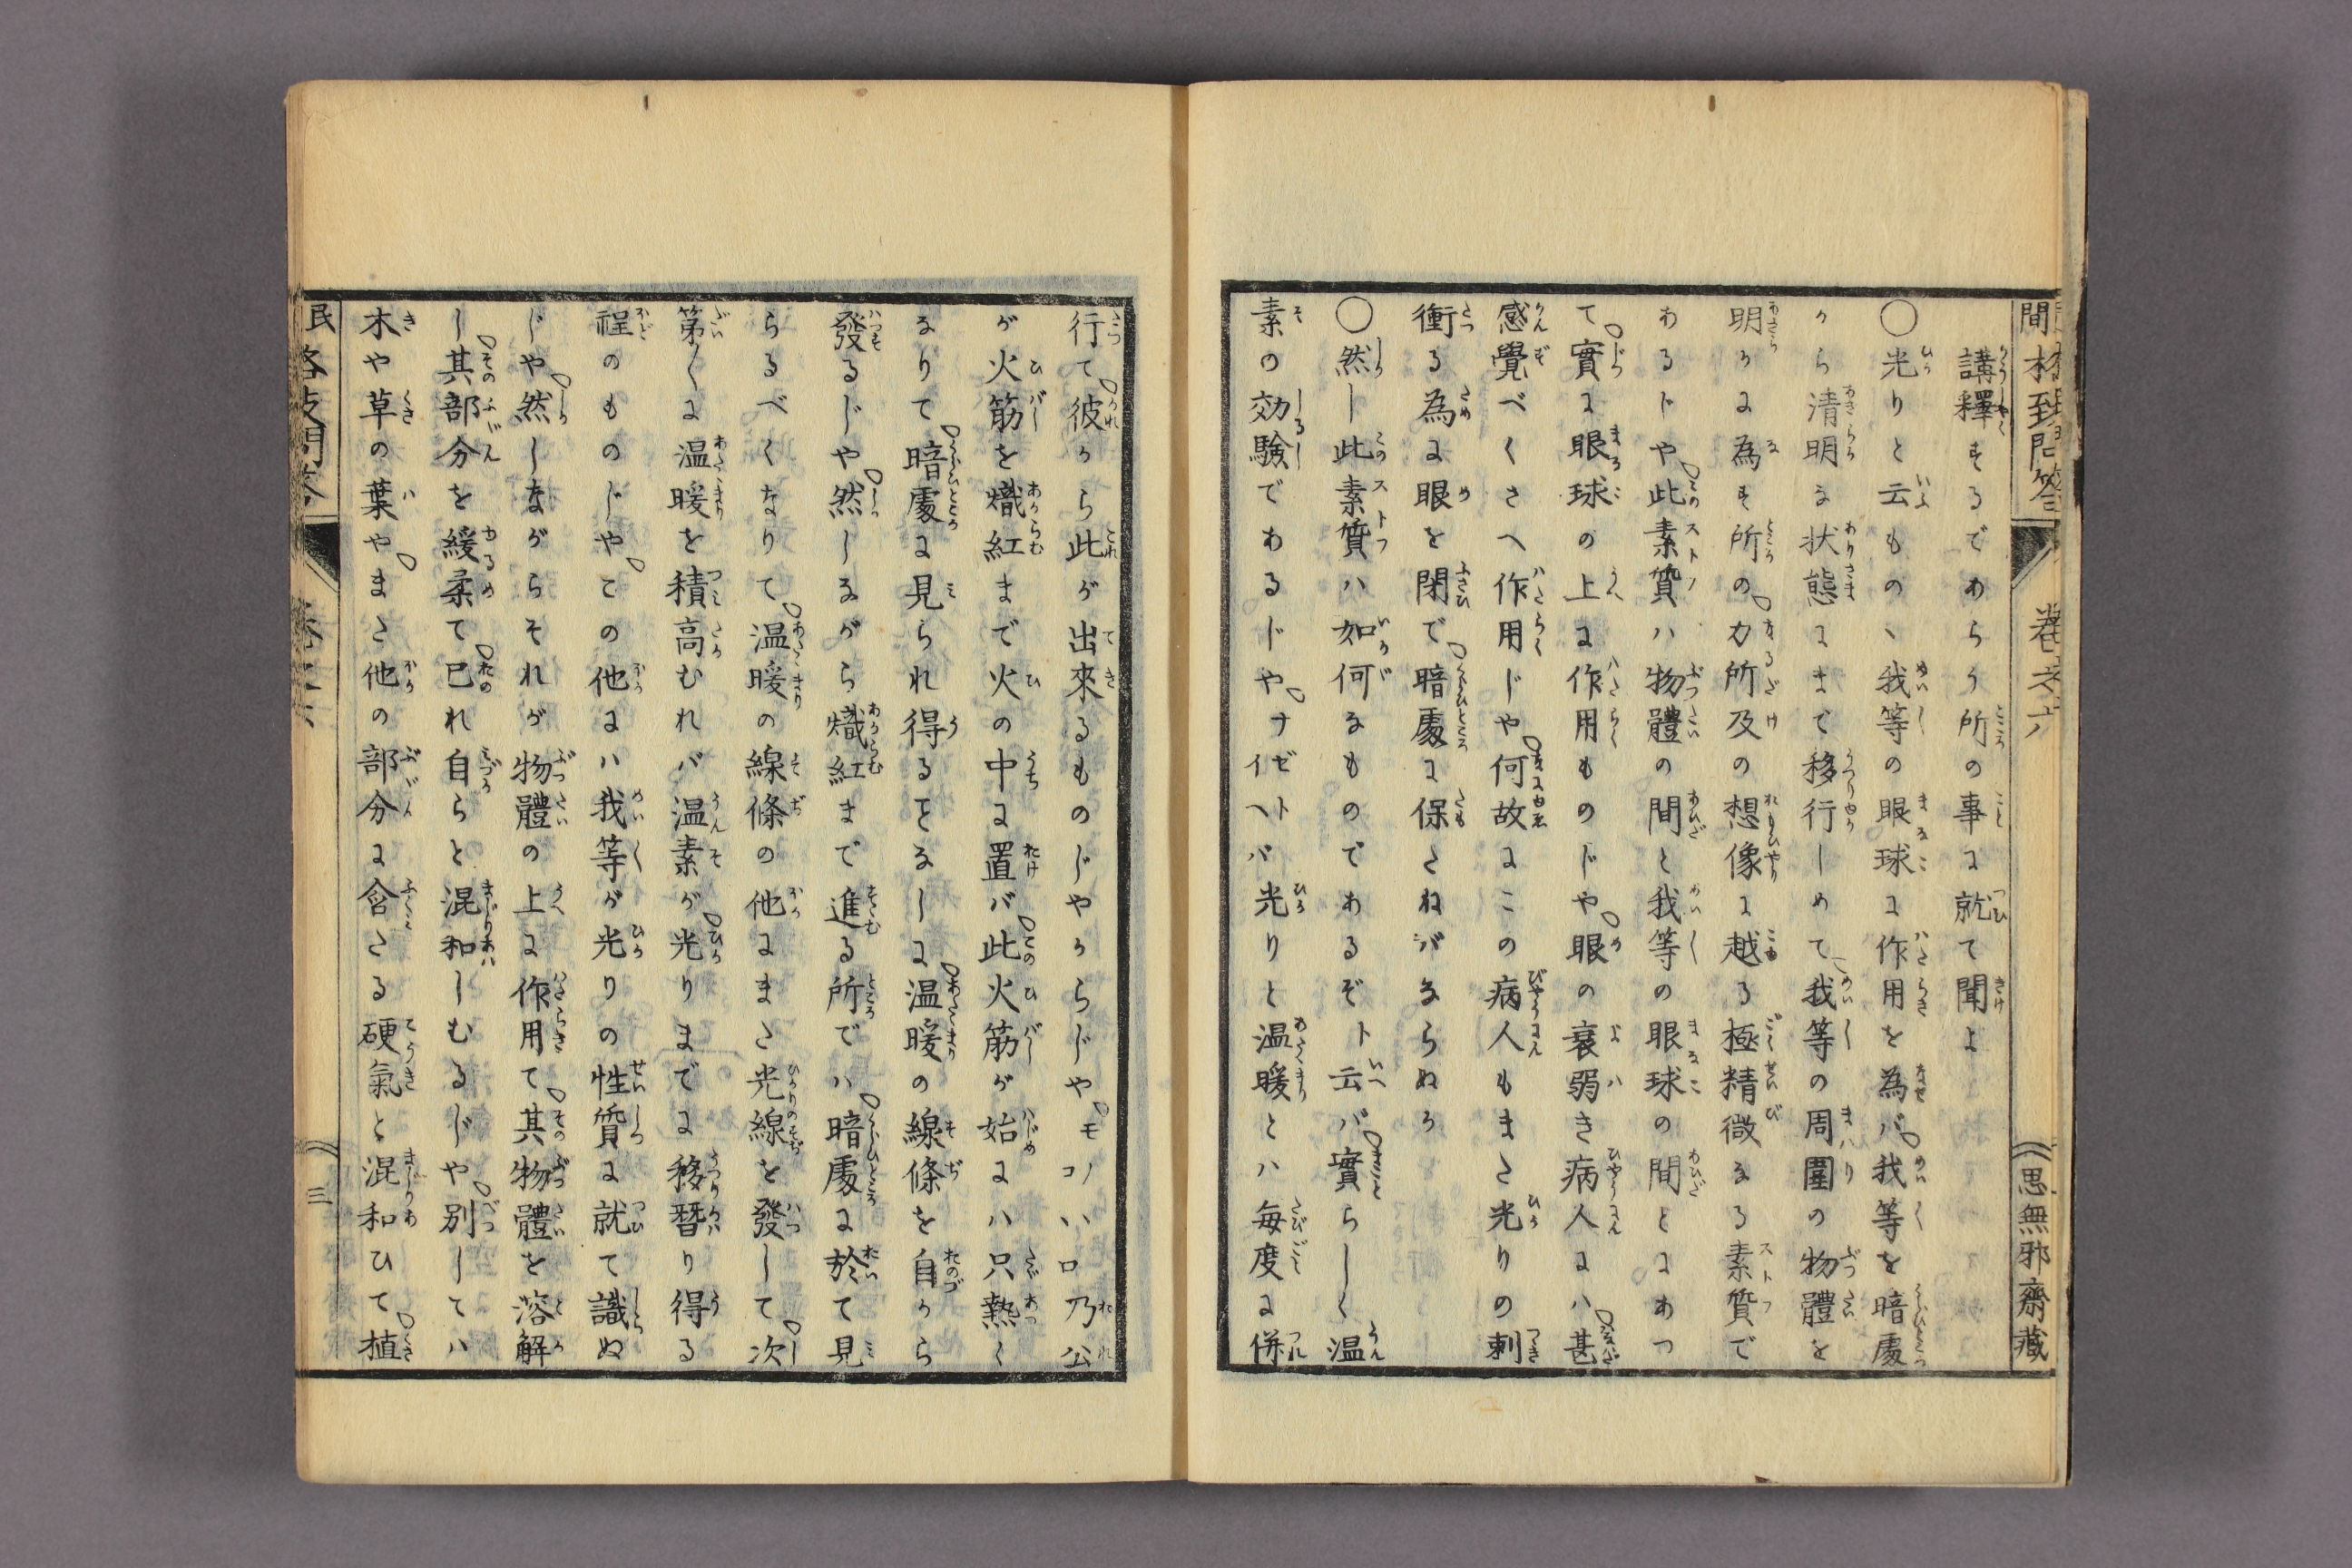 講釋するであらう所の事に就て聞よ
〇光りと云ものハ我等の眼球に作用を為バ我等を暗處
から清明な状態にまで移行しめて我等の周圍の物體を
明かに為す所の力所及の想像に越る極精微なる素質で
あるじや此素質ハ物體の間と我等の眼球の間とにあつ
て實に眼球の上に作用ものじや眼の衰弱き病人にハ甚
感覺べくさへ作用じや何故にこの病人もまた光りの刺
衝る為に眼を閉で暗處に保たねバならぬか
〇然し此素質ハ如何なものであるぞト云バ實らしく温
素の効驗であるじやナゼトイヘバ光りと温暖とハ毎度に併
卷之六
思無邪齋藏
行て彼から此が出來るものじやからじやモコノいロ乃公
が火筋を熾紅まで火の中に置バ此火筋が始にハ只熱く
なりて暗處に見られ得るとなしに温暖の線條を自から
發るじや然しながら熾紅まで進る所でハ暗處に於て見
らるべくなりて温暖の線條の他にまた光線を發して次
第〱に温暖を積高むれバ温素が光りまでに移替り得る
程のものじやこの他にハ我等が光りの性質に就て識ぬ
じや然しながらそれが物體の上に作用て其物體を溶解
し其部分を緩柔て已れ自らと混和しむるじや別してハ
木や草の葉やまた他の部分に含たる硬氣と混和ひて植
三